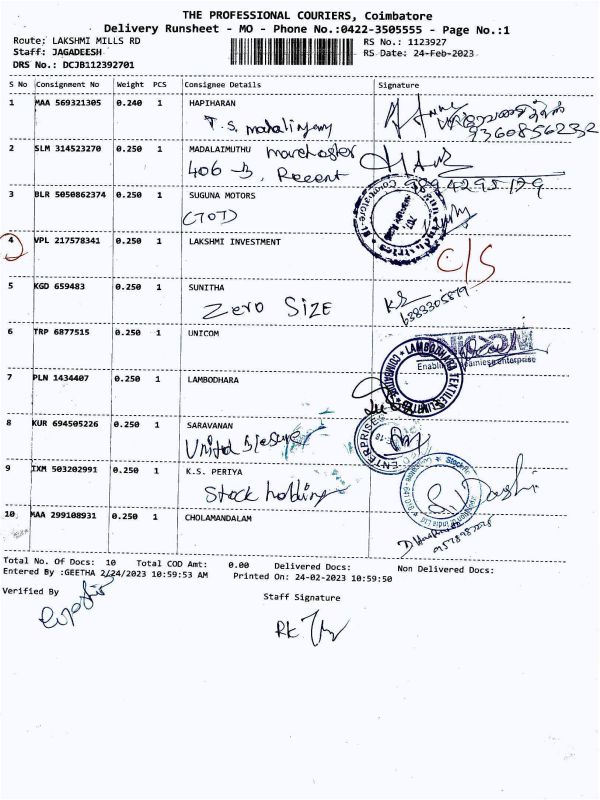 THE PROFESSIONAL COURIERS, Coimbatore
Delivery Runsheet - MO - Phone No.:0422-3505555 - Page No.:1
Route: LAKSHMI MILLS RD RS No.: 1123927
Staff: JAGADEESH RS Date: 24-Feb-2023
DRS No.: DCJB112392701
S No Consignment No Weight PCS Consignee Details Signature
1 MAA 569321305 0.240 1 HAPIHARAN
T.S.
9360856232
2 SLM 314523270 0.250 1 MADALAIMUTHU
406 B, Recent
9894295129
3 BLR 5050862374 0.250 1 SUGUNA MOTORS
(TOT)
4 VPL 217578341 0.250 1 LAKSHMI INVESTMENT
C/S
5 KGD 659483 0.250 1 SUNITHA
Zero SIZE
6383305879
6 TRP 6877515 0.250 1 UNICOM
7 PLN 1434407 0.250 1 LAMBODHARA
LAMBODHARA TEXTILES LIMITED * COIMBATORE *
8 KUR 694505226 0.250 1 SARAVANAN
United
ENTERPRISES
9 IXM 503202991 0.250 1 K.S. PERIYA
Stock holding
10 MAA 299108931 0.250 1 CHOLAMANDALAM
Total No. Of Docs: 10 Total COD Amt: 0.00 Delivered Docs: Non Delivered Docs:
Entered By :GEETHA 2/24/2023 10:59:53 AM Printed On: 24-02-2023 10:59:50
Verified By
Staff Signature
RK